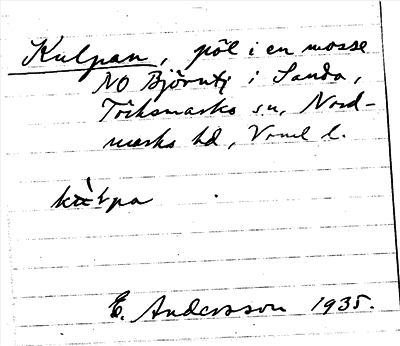 Kulpan, pöl i en mosse
NO Björntj i Sanda,
Töcksmarks sn, Nord-
marks hd, Vrml l.
kùlpa
E. Andersson 1935.